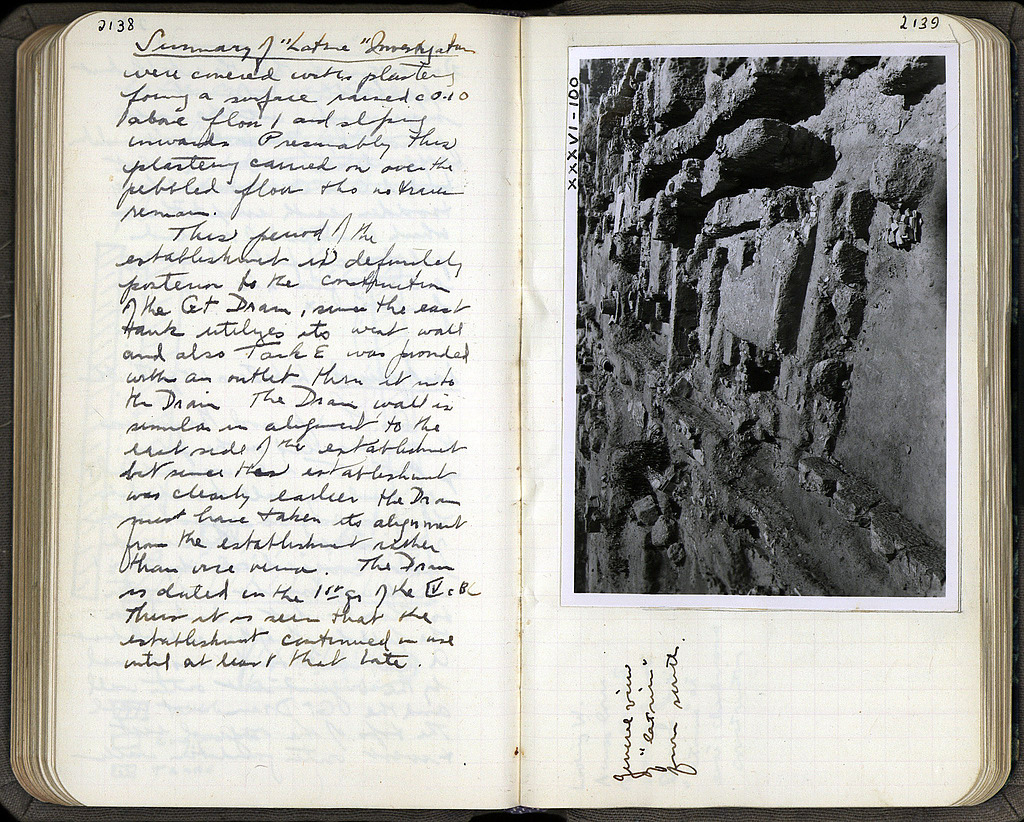 2138
Summary of "Latrine" Investigation
were covered with plastering
forming a surface raised c 0.10
above floor 1 and sloping
inwards Presumably this
plastering carried on over the
pebbled floor tho no traces
remain.
This period of the
establishment is definitely
posterior to the construction
of the Gt Drain, since the east
tank utilizes its west wall
and also Tank E was provided
with an outlet thru it into
the Drain The Drain wall is
similar in alignment to the
east side of the establishment
but since the establishment
was clearly earlier the Drain
must have taken its alignment
from the establishment rather
than vice versa. The Drain
is dated in the 1st qr of the IV c BC
Thus it is seen that the
establishment continued in use
until at least that date.
2139
XXXVI-100
general view
of "latrine"
from south.